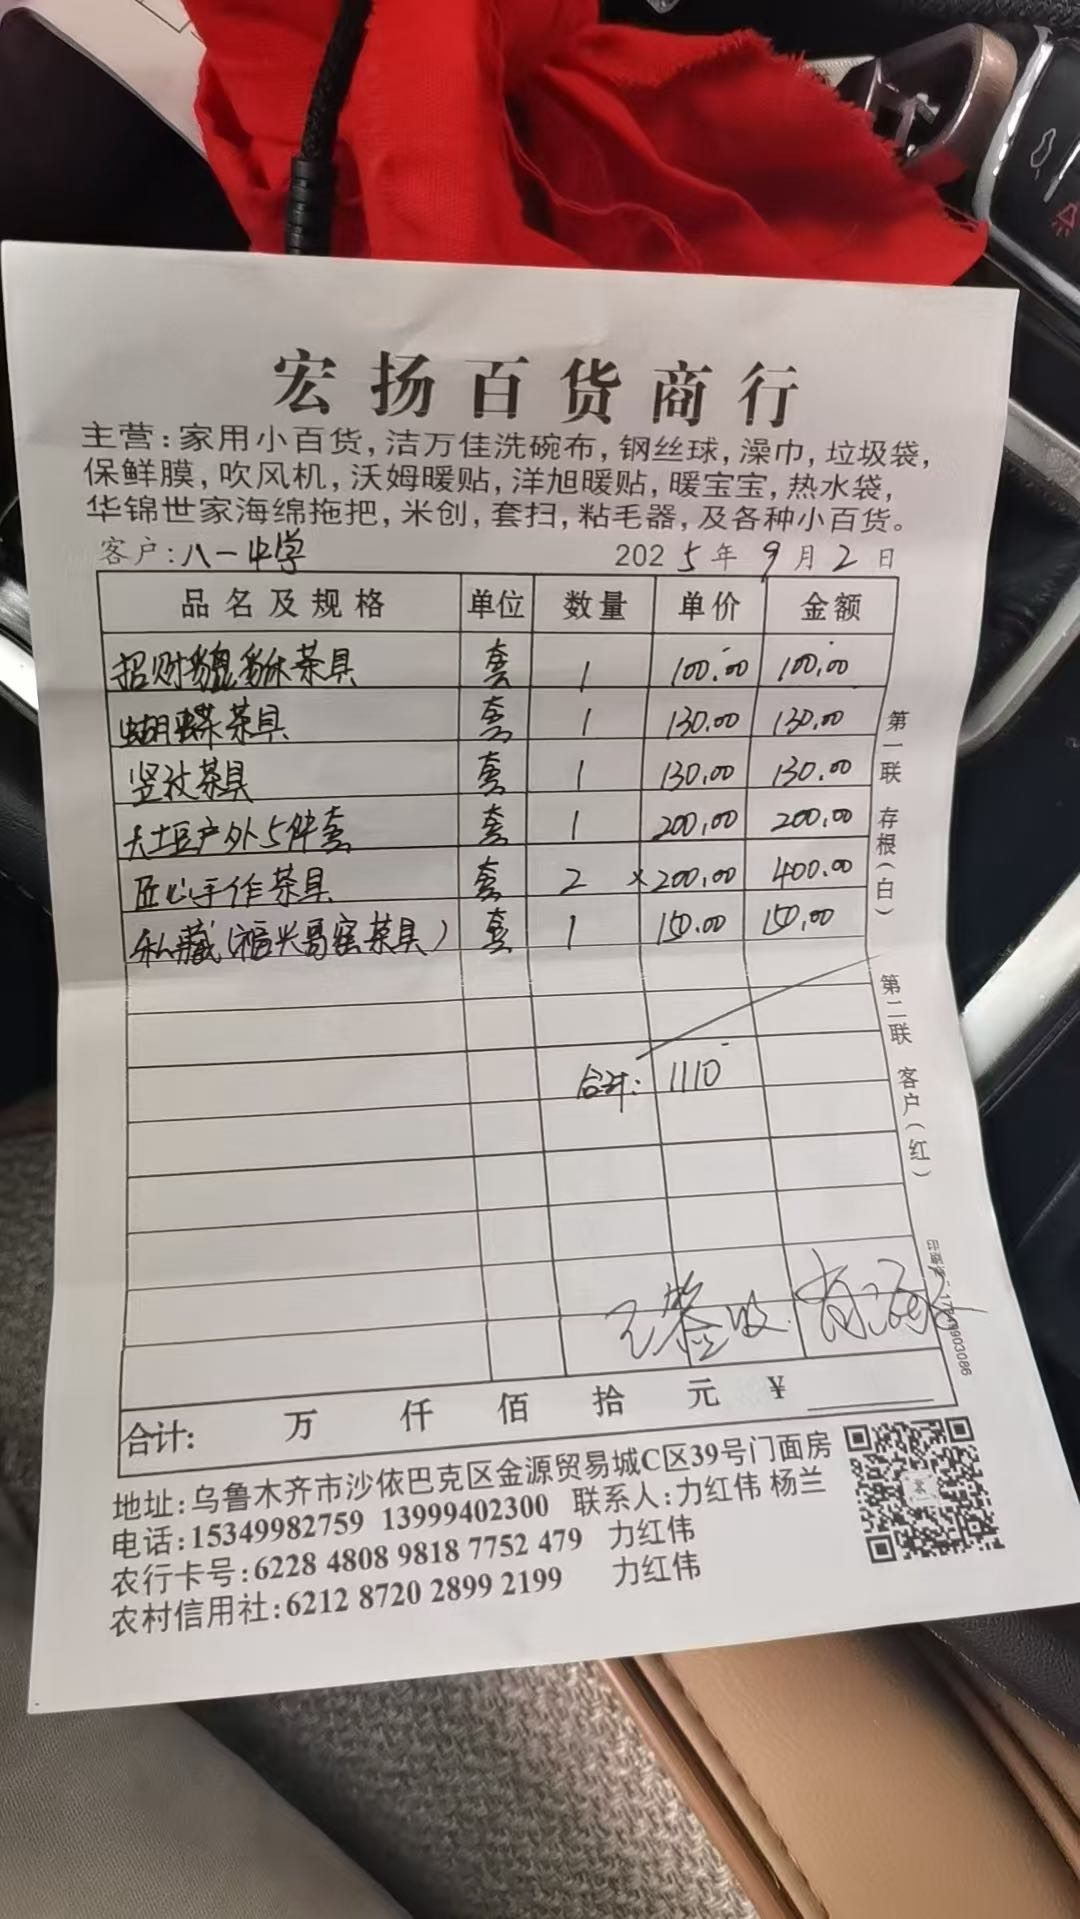 宏扬百货商行
主营:家用小百货,洁万佳洗碗布,钢丝球,澡巾,垃圾袋,
保鲜膜,吹风机,沃姆暖贴,洋旭暖贴,暖宝宝,热水袋,
华锦世家海绵拖把,米创,套扫,粘毛器,及各种小百货。
客户:八一中学 2025年9月2日
品名及规格 单位 数量 单价 金额
招财貔貅茶具 套 1 100.00 100.00
蝴蝶茶具 套 1 130.00 130.00
竖纹茶具 套 1 130.00 130.00
大土豆户外5件套 套 1 200.00 200.00
匠心手作茶具 套 2 ×200.00 400.00
私藏(福兴哥窑茶具) 套 1 150.00 150.00
合计: 1110
第一联 存根(白) 第二联 客户(红)
合计: 万 仟 佰 拾 元 ¥
地址:乌鲁木齐市沙依巴克区金源贸易城C区39号门面房
电话:15349982759 13999402300 联系人:力红伟 杨兰
农行卡号:6228 4808 9818 7752 479 力红伟
农村信用社:6212 8720 2899 2199 力红伟